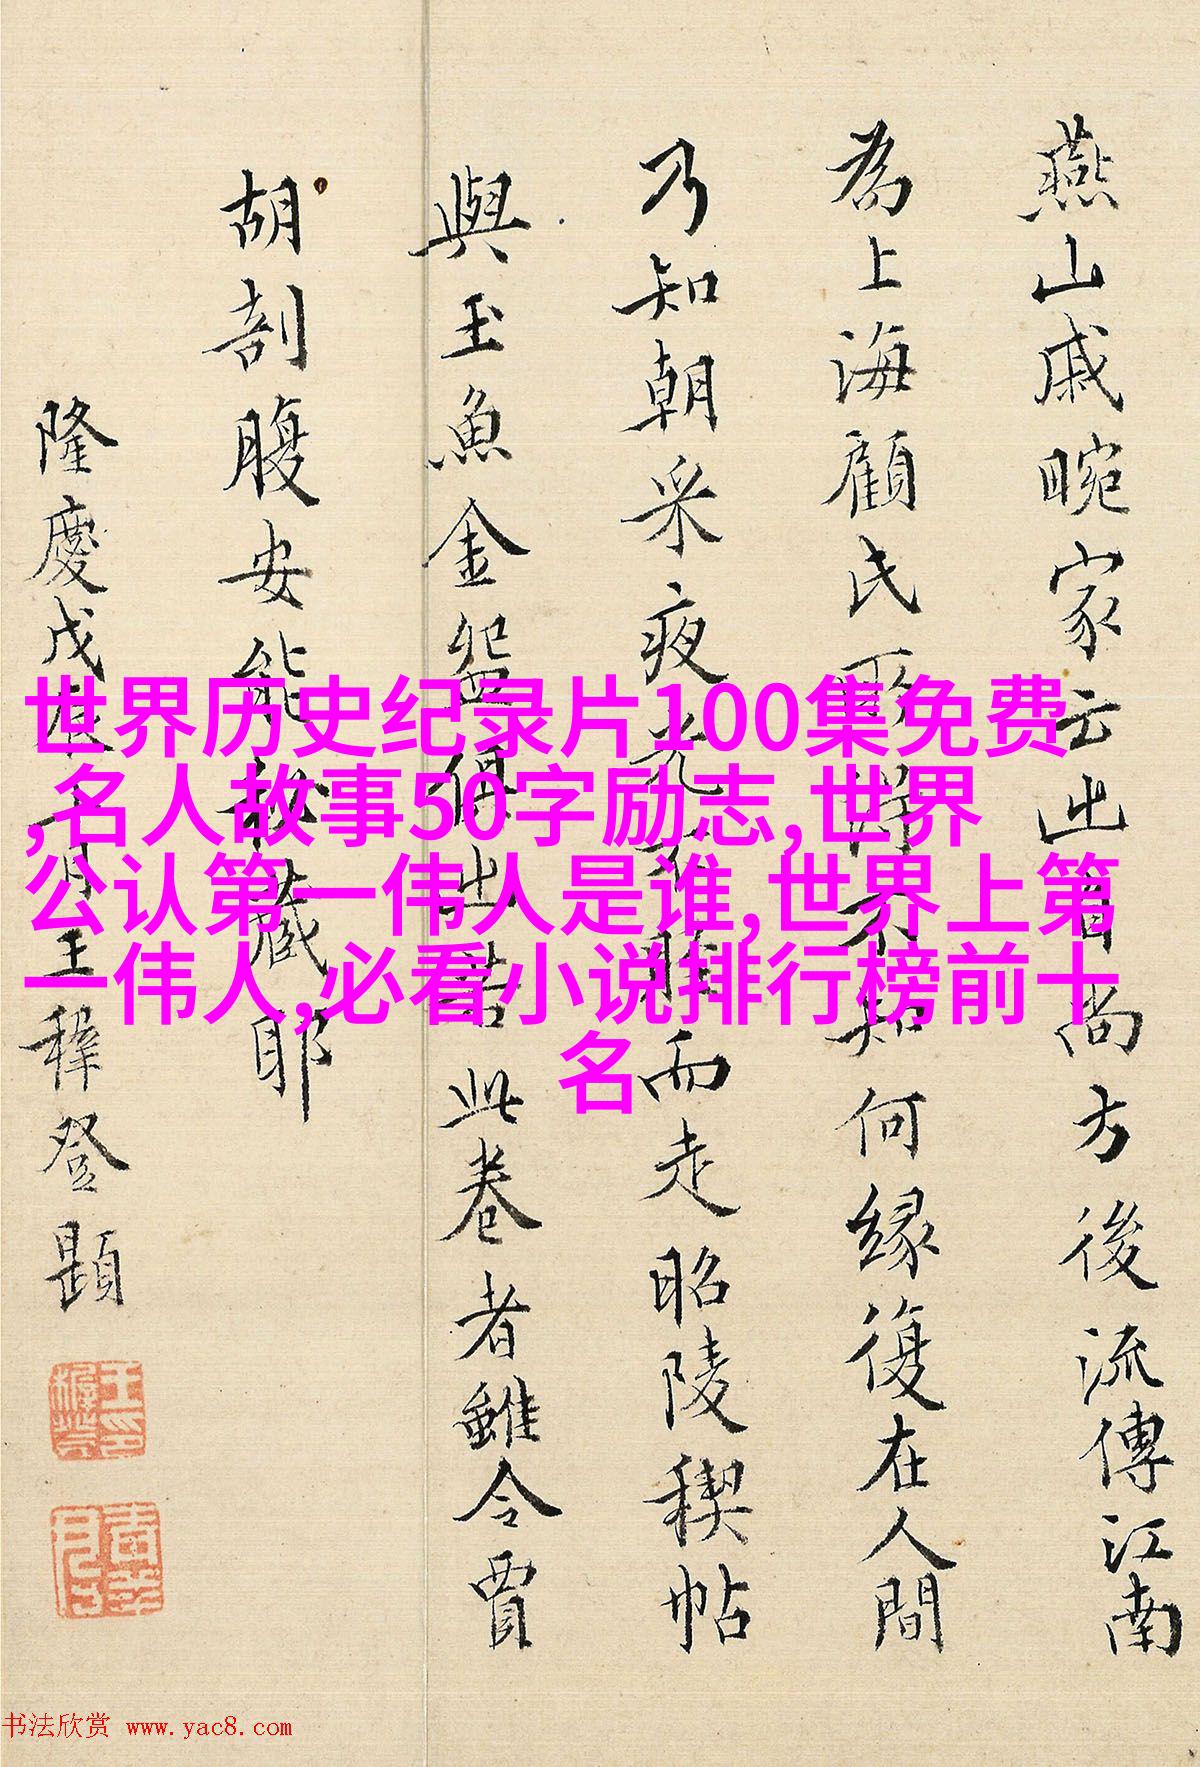 燕山戚畹家云出自尚方後流傳江南
為上海顧氏所得不知何緣復在人間
乃知朝采夜光不胫而走昭陵稧帖
與玉魚金盌俱出若此卷者雖令賈
胡剖腹安能秘藏耶
隆慶戊辰二月王穉登題
世界历史纪录片100集免费
,名人故事50字励志,世界
公认第一伟人是谁,世界上第
一伟人,必看小说排行榜前十
名
书法欣赏 www.yac8.com